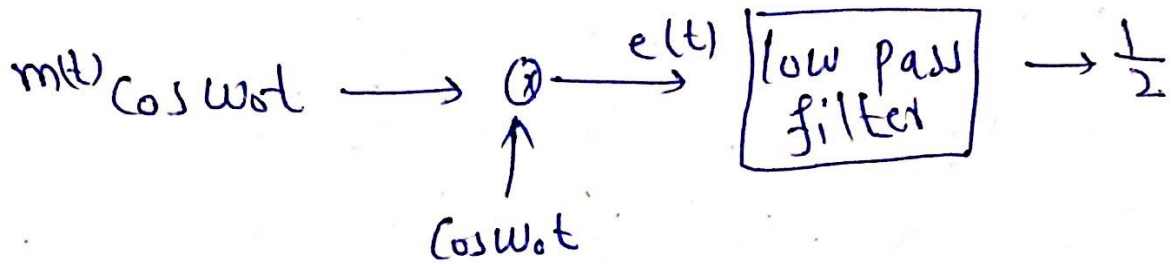 m(t) Cos ω₀t → ⊗ → e(t) low pass filter → 1/2
Cos ω₀t